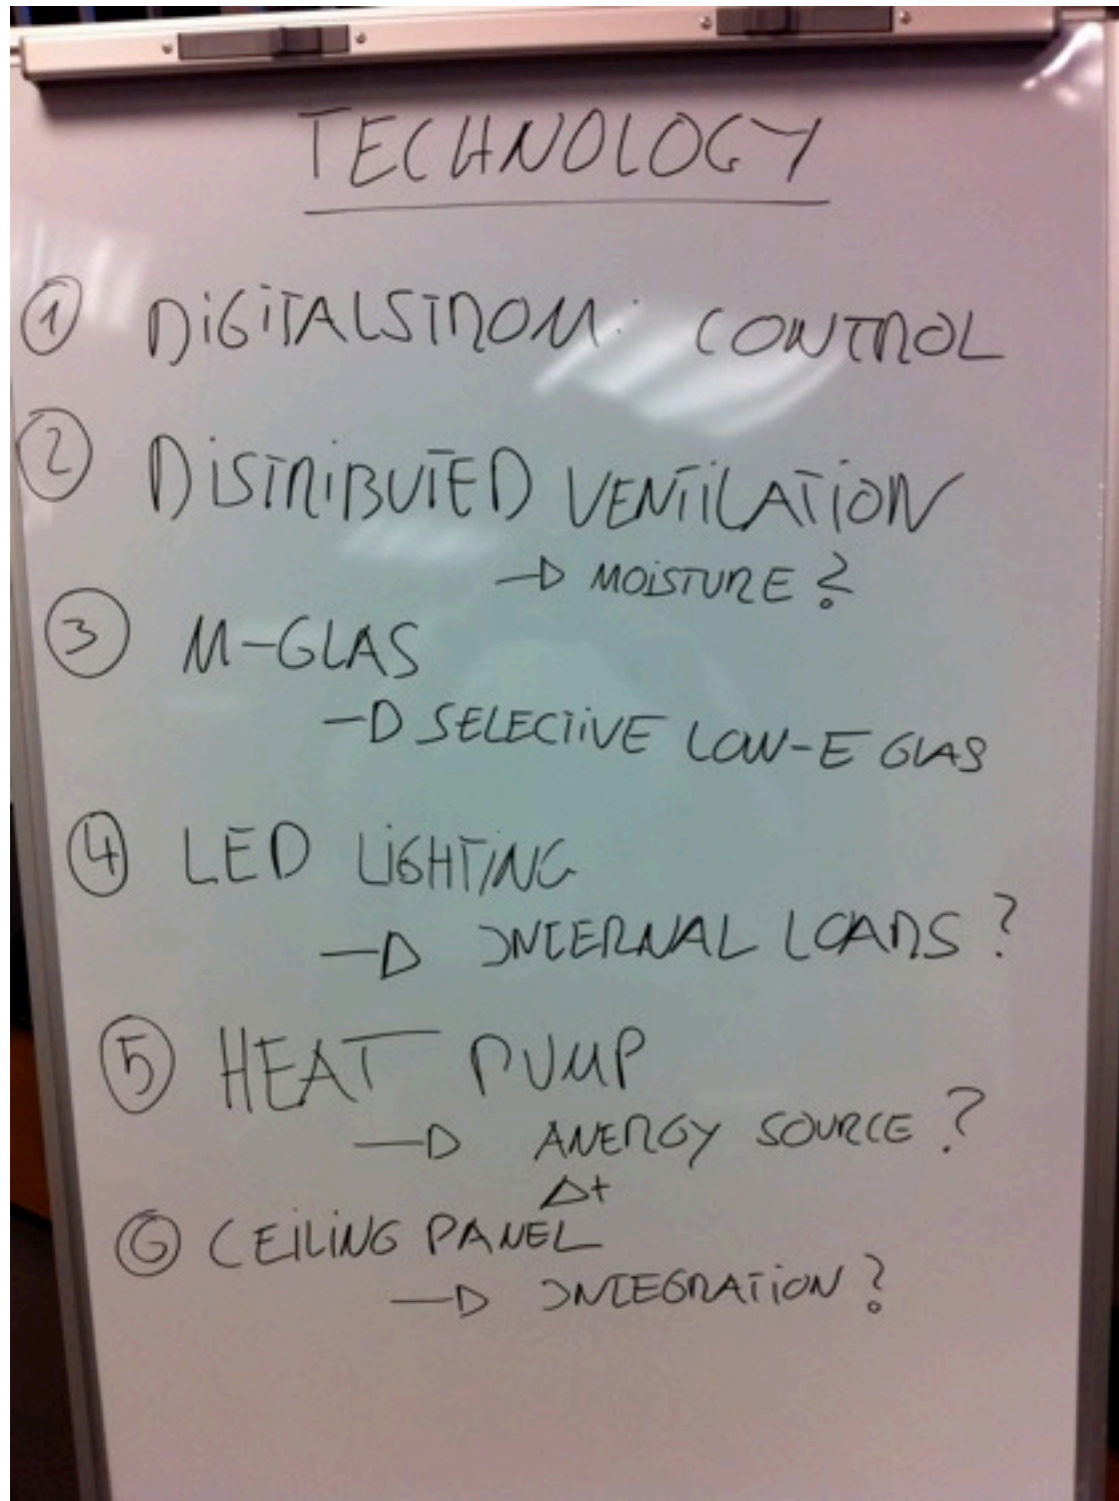 TECHNOLOGY
① DIGITALSTROM: CONTROL
② DISTRIBUTED VENTILATION
→ MOISTURE?
③ M-GLAS
→ SELECTIVE LOW-E GLAS
④ LED LIGHTING
→ INTERNAL LOADS?
⑤ HEAT PUMP
→ ANERGY SOURCE?
Δt
⑥ CEILING PANEL
→ INTEGRATION?